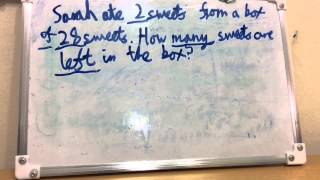 Sarah ate 2 sweets from a box
of 28 sweets. How many sweets are
left in the box?